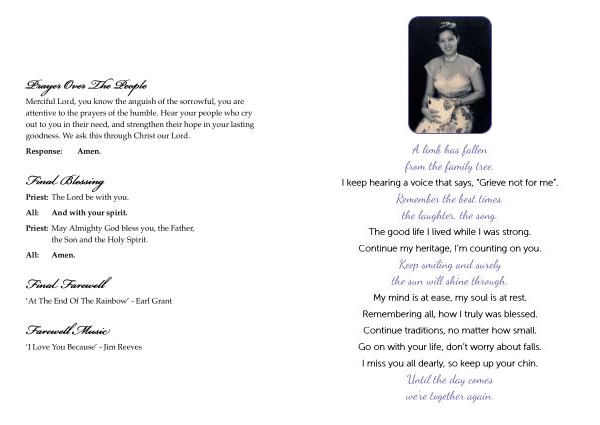 Prayer Over The People
Merciful Lord, you know the anguish of the sorrowful, you are
attentive to the prayers of the humble. Hear your people who cry
out to you in their need, and strengthen their hope in your lasting
goodness. We ask this through Christ our Lord.
Response: Amen.
Final Blessing
Priest: The Lord be with you.
All: And with your spirit.
Priest: May Almighty God bless you, the Father,
the Son and the Holy Spirit.
All: Amen.
Final Farewell
‘At The End Of The Rainbow’ - Earl Grant
Farewell Music
‘I Love You Because’ - Jim Reeves
A limb has fallen
from the family tree.
I keep hearing a voice that says, “Grieve not for me”.
Remember the best times,
the laughter, the song.
The good life I lived while I was strong.
Continue my heritage, I’m counting on you.
Keep smiling and surely
the sun will shine through.
My mind is at ease, my soul is at rest.
Remembering all, how I truly was blessed.
Continue traditions, no matter how small.
Go on with your life, don’t worry about falls.
I miss you all dearly, so keep up your chin.
Until the day comes
we’re together again.